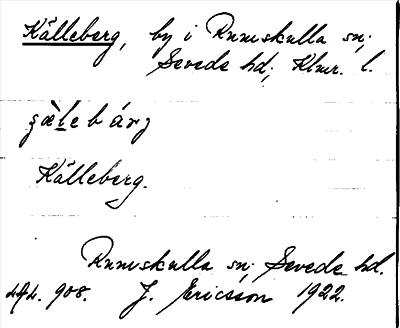 Källeberg, by i Rumskulla sn;
Sevede hd; Klmr. l.
Källeberg.
Rumskulla sn; Sevede hd.
908. J. Ericsson 1922.